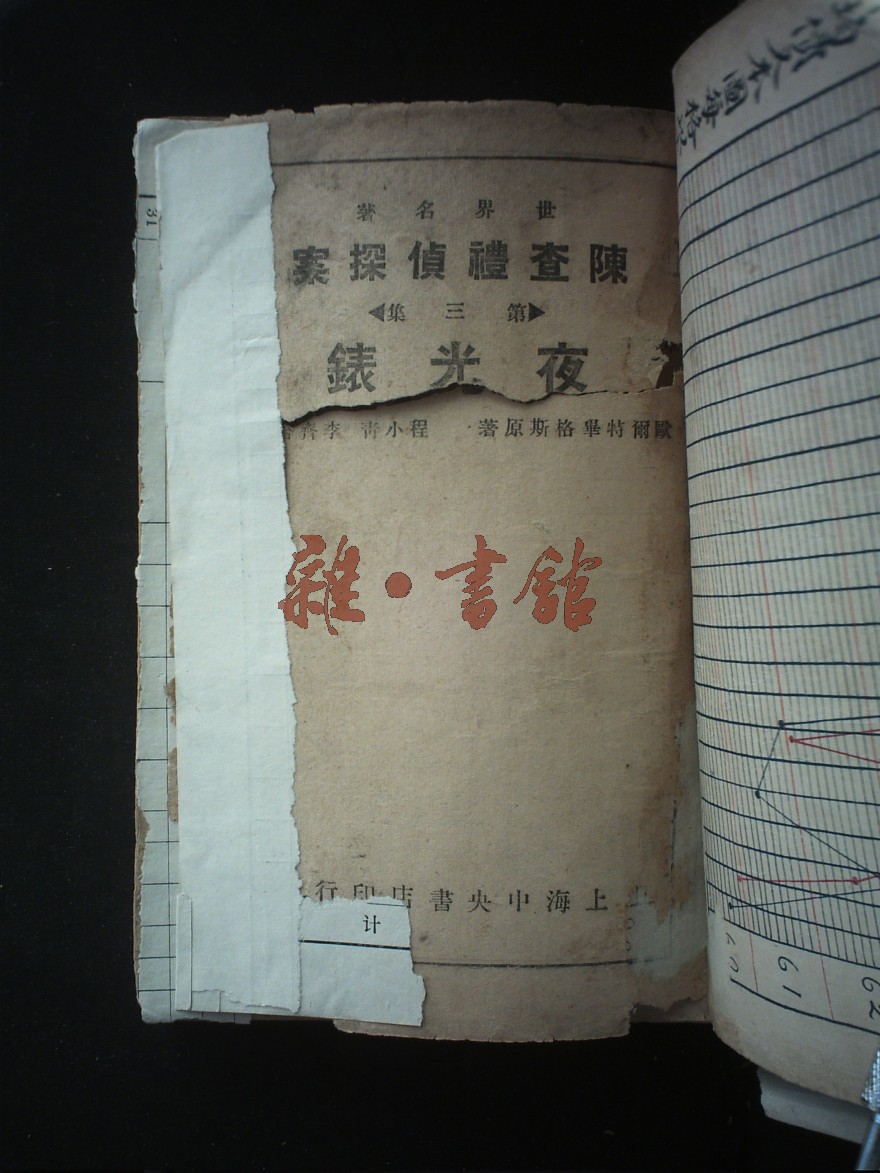 世界名著
陳查禮偵探案
▶第三集◀
夜光錶
歐爾特畢格斯原著・程小青 李齊
雜・書館
上海中央書店印行
计
31
61
62